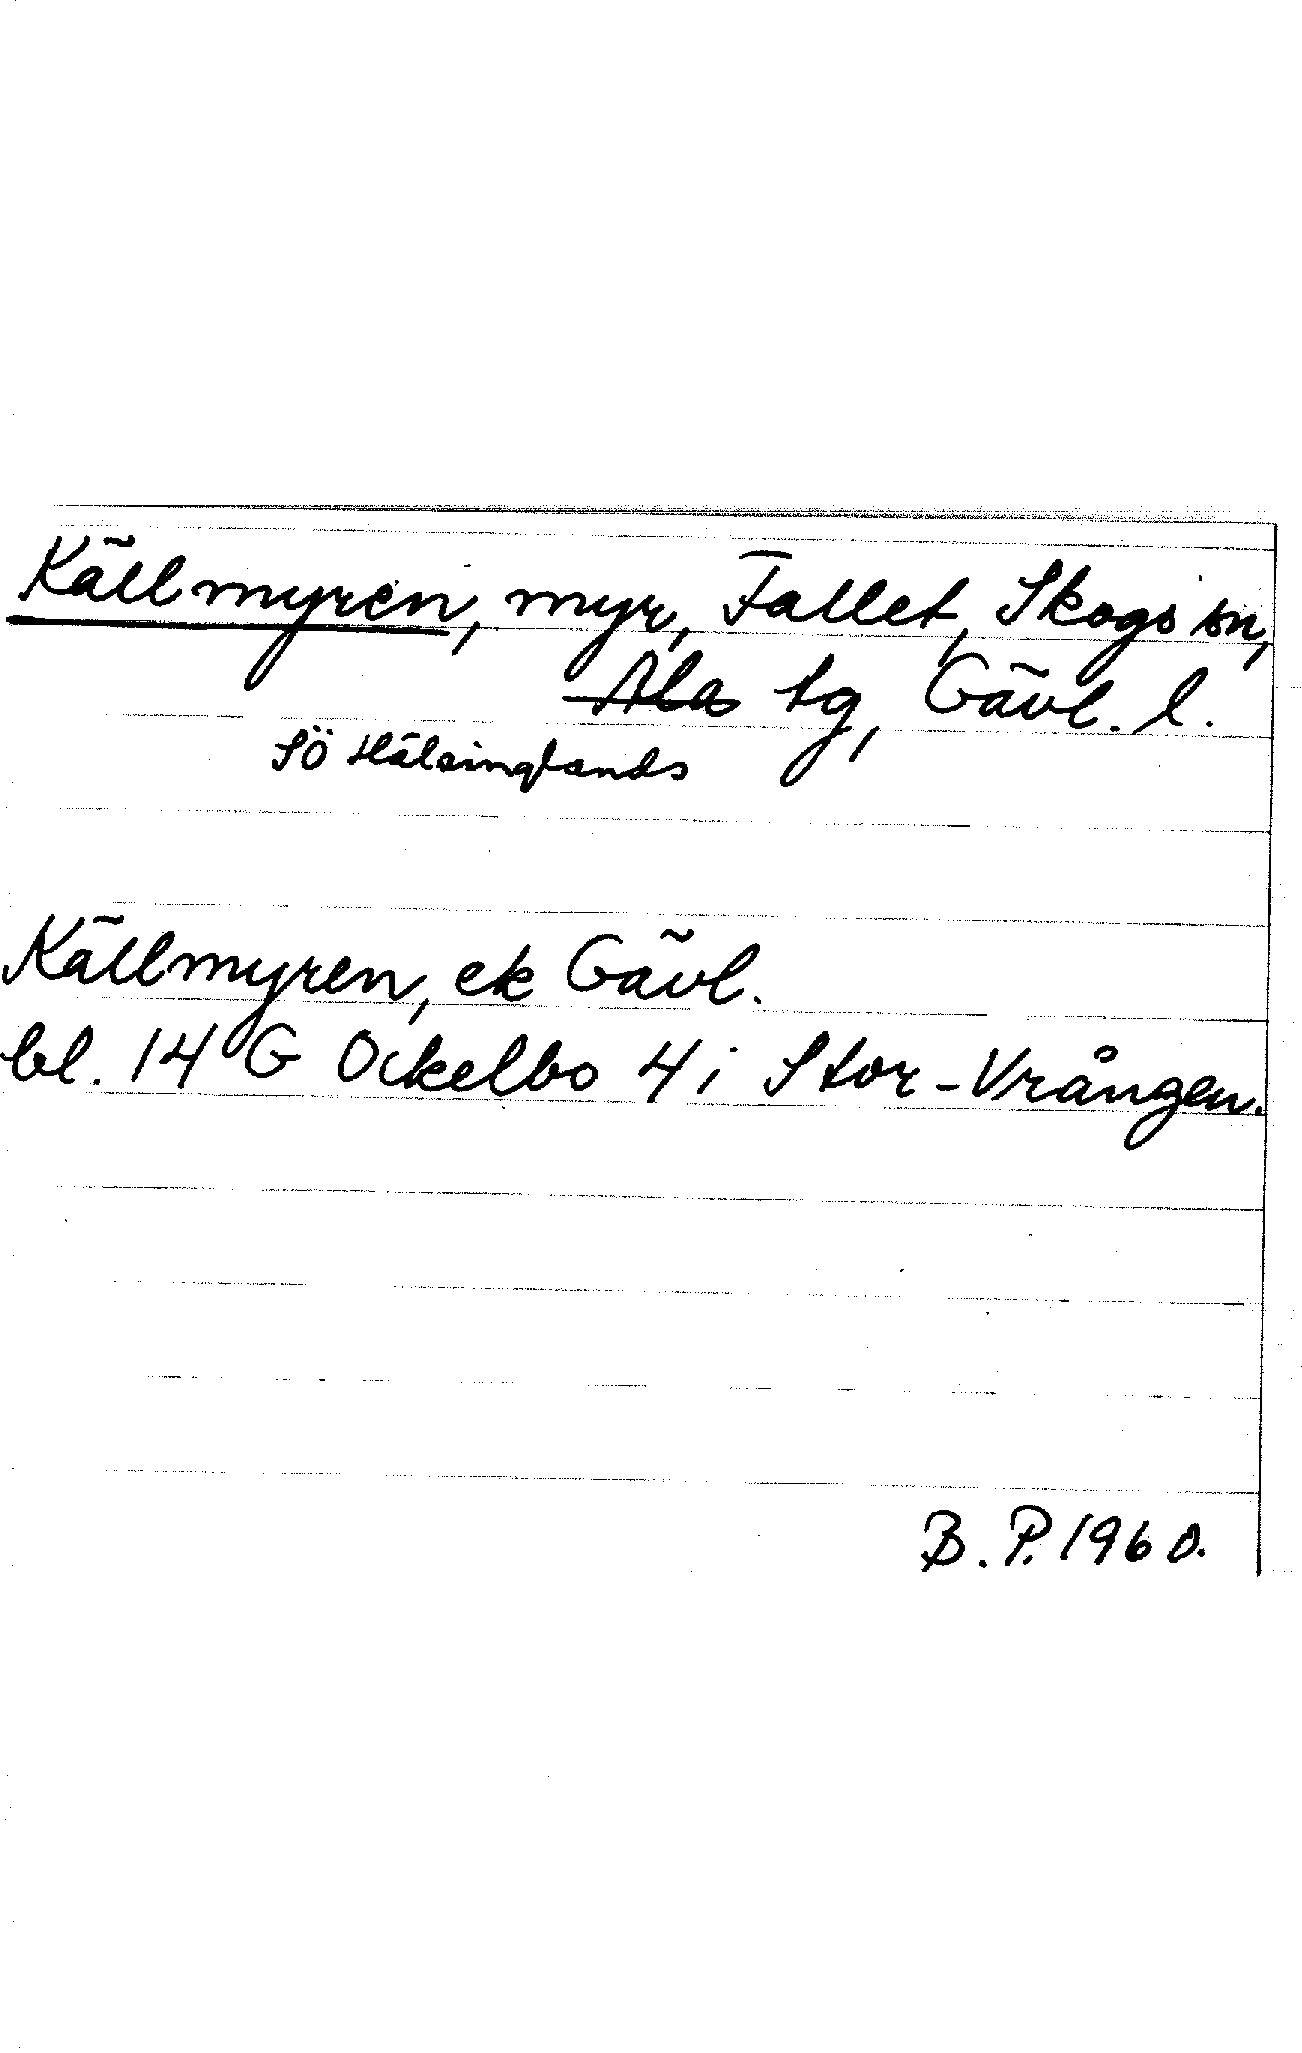 Källmyren, myr, Fallet, Skogs sn,
Ala tg, Gävl. l.
Sö Hälsinglands
Källmyren, ek Gävl.
bl. 14 G Ockelbo 4 i Stor-Vrången.
B. P. 1960.